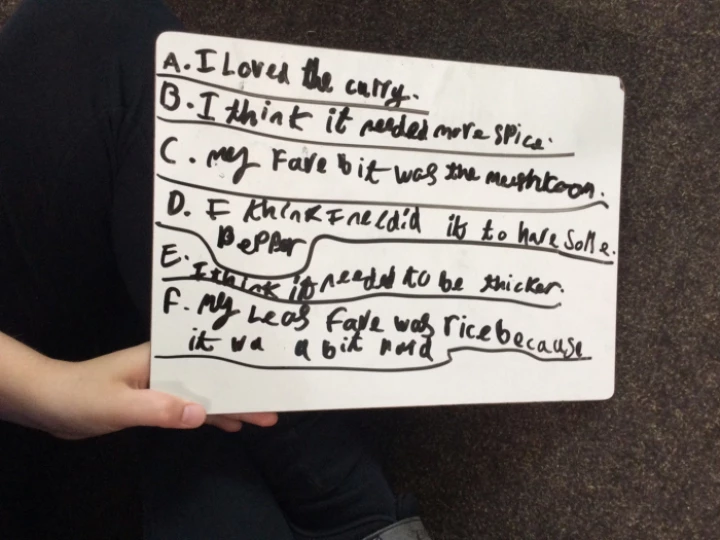 A. I Loved the curry.
B. I think it needed more spice.
C. my Fave bit was the mushroom.
D. I think I neldid it to have some
Pepper
E. I think it needed to be thicker.
F. my Leas Fave was rice because
it wa a bit hard